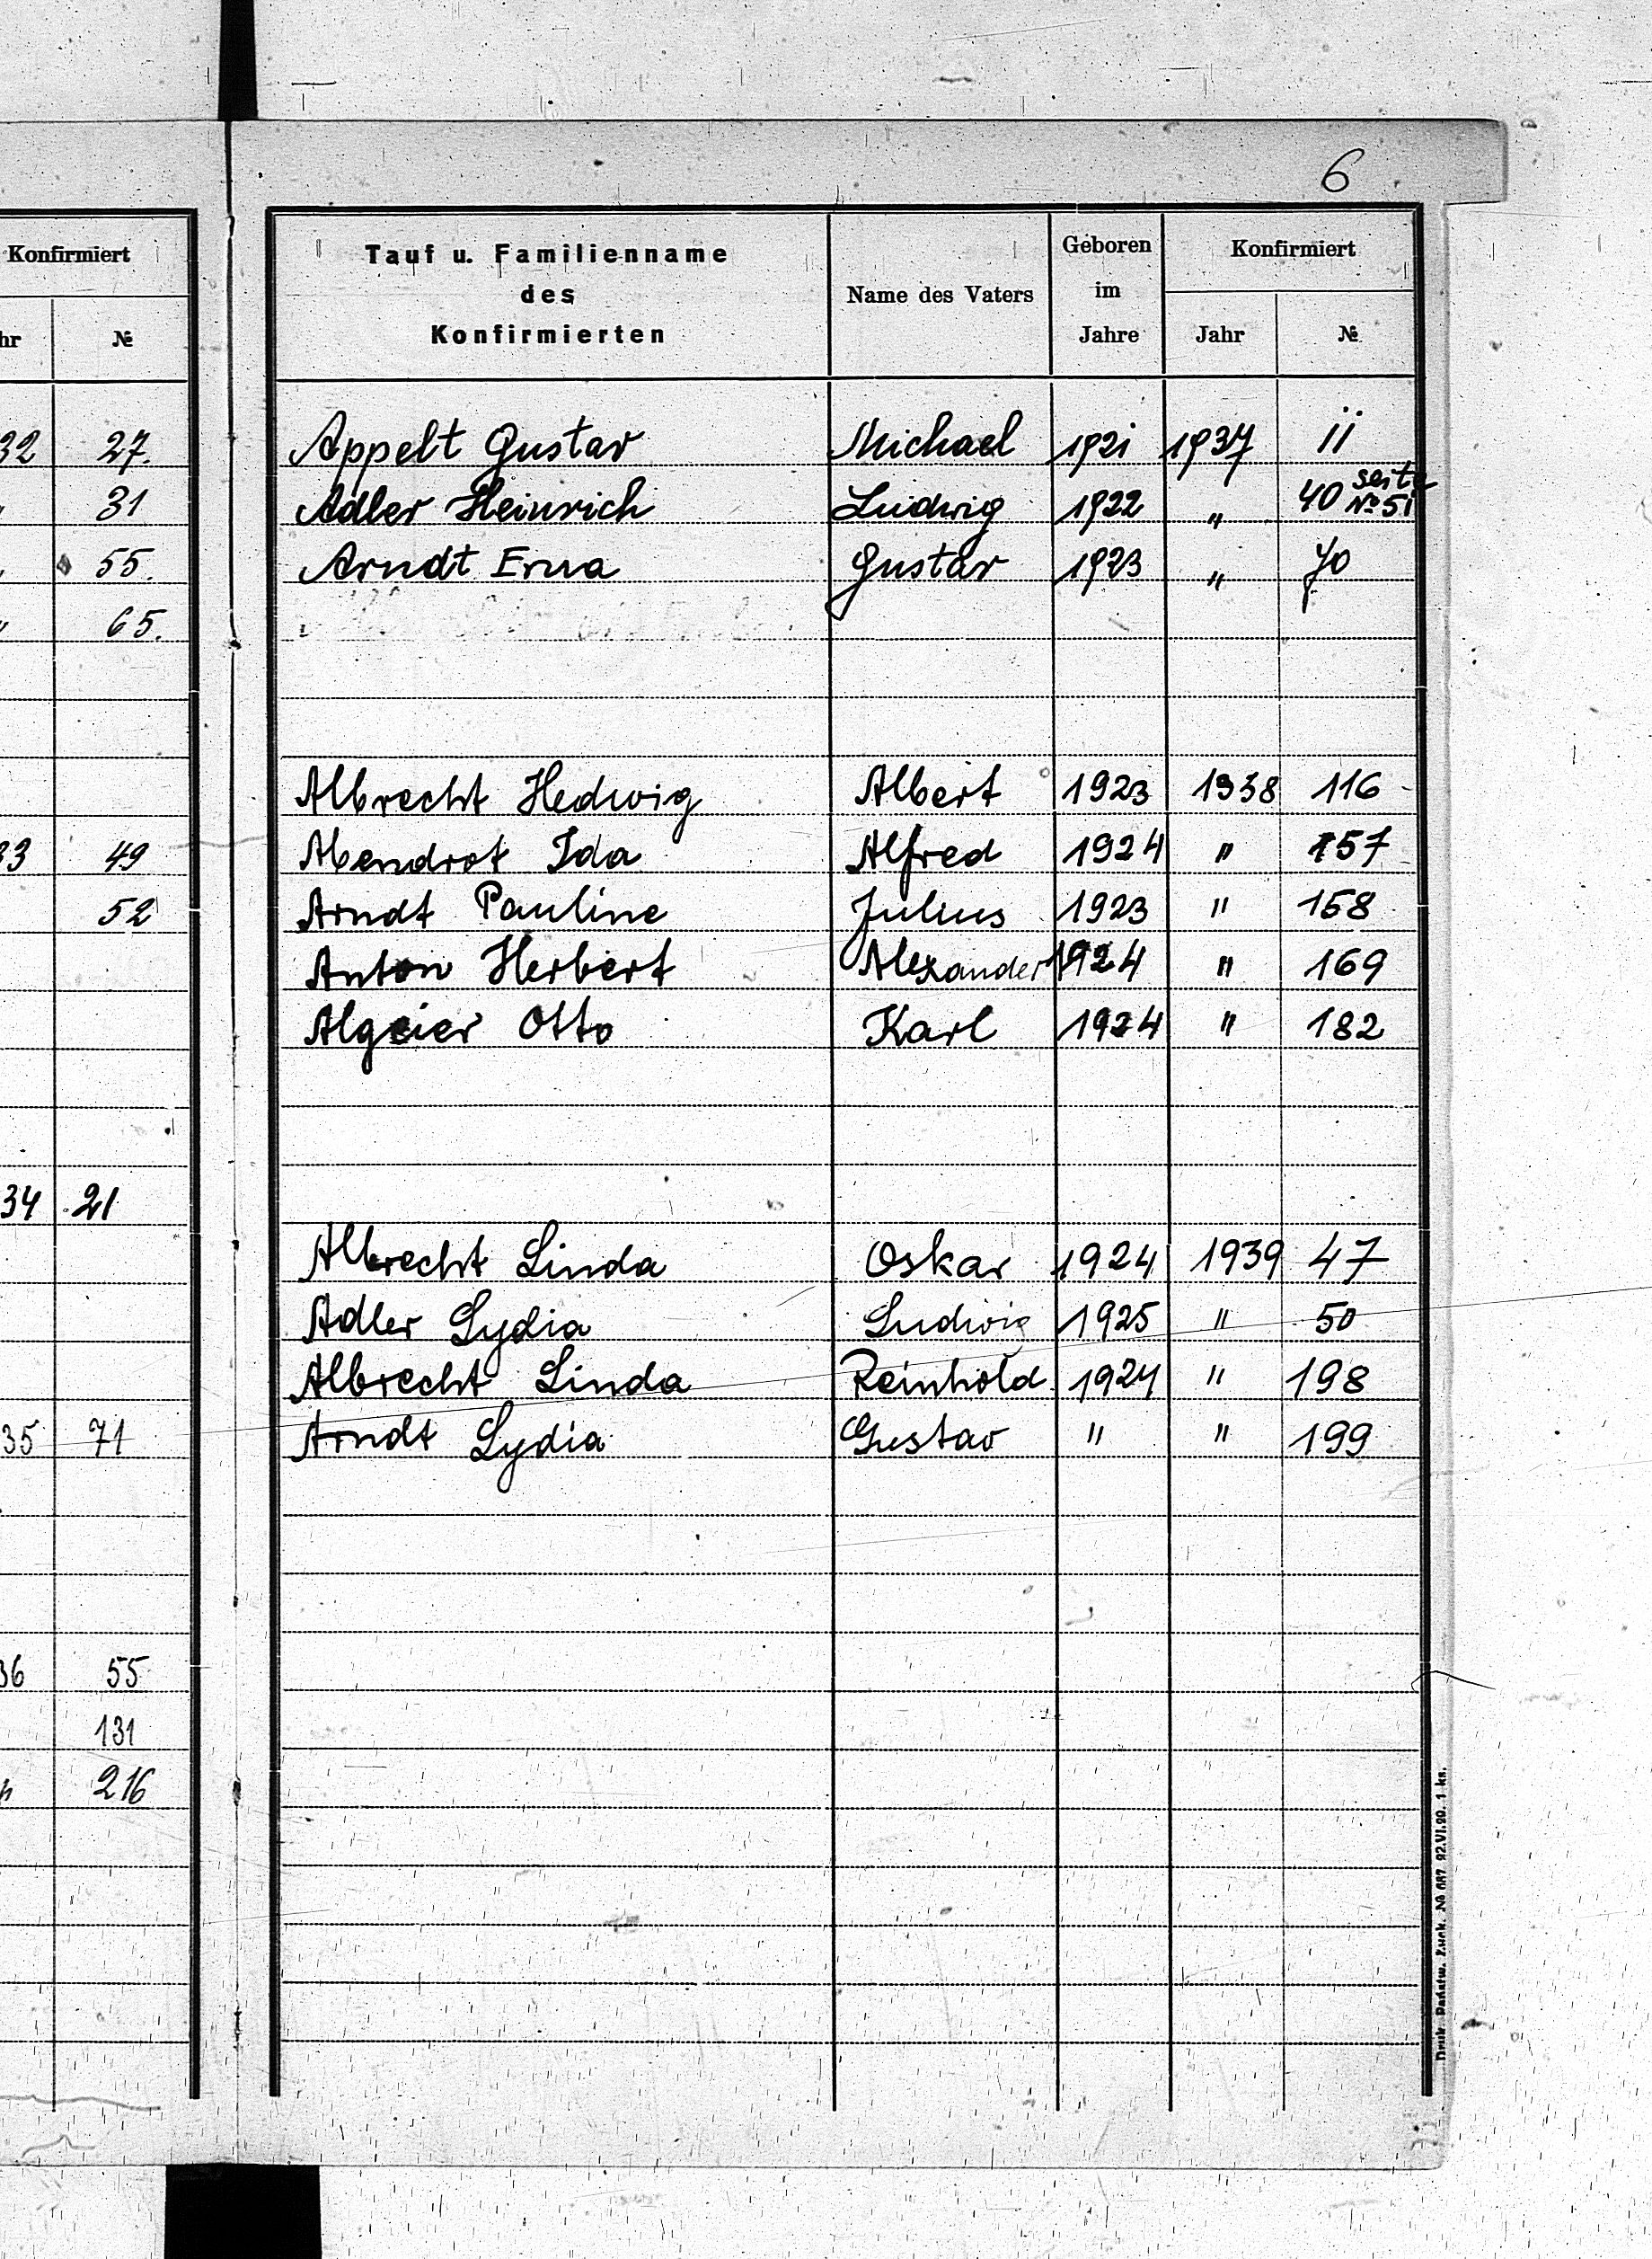 6
Konfirmiert
hr №
32 27.
" 31
" 55.
" 65.
33 49
52
34 21
35 71
36 55
131
" 216
Tauf u. Familienname des Konfirmierten | Name des Vaters | Geboren im Jahre | Konfirmiert Jahr | №
Appelt Gustav Michael 1921 1937 11
Adler Heinrich Ludwig 1922 " 40 seite № 51
Arndt Erna Gustav 1923 " 70
Albrecht Hedwig Albert 1923 1938 116
Abendrot Ida Alfred 1924 " 157
Arndt Pauline Julius 1923 " 158
Anton Herbert Alexander 1924 " 169
Algeier Otto Karl 1924 " 182
Albrecht Linda Oskar 1924 1939 47
Adler Lydia Ludwig 1925 " 50
Albrecht Linda Reinhold 1924 " 198
Arndt Lydia Gustav " " 199
Druk. Państw. Łuck. № 687 22.VI.20. 1 ks.